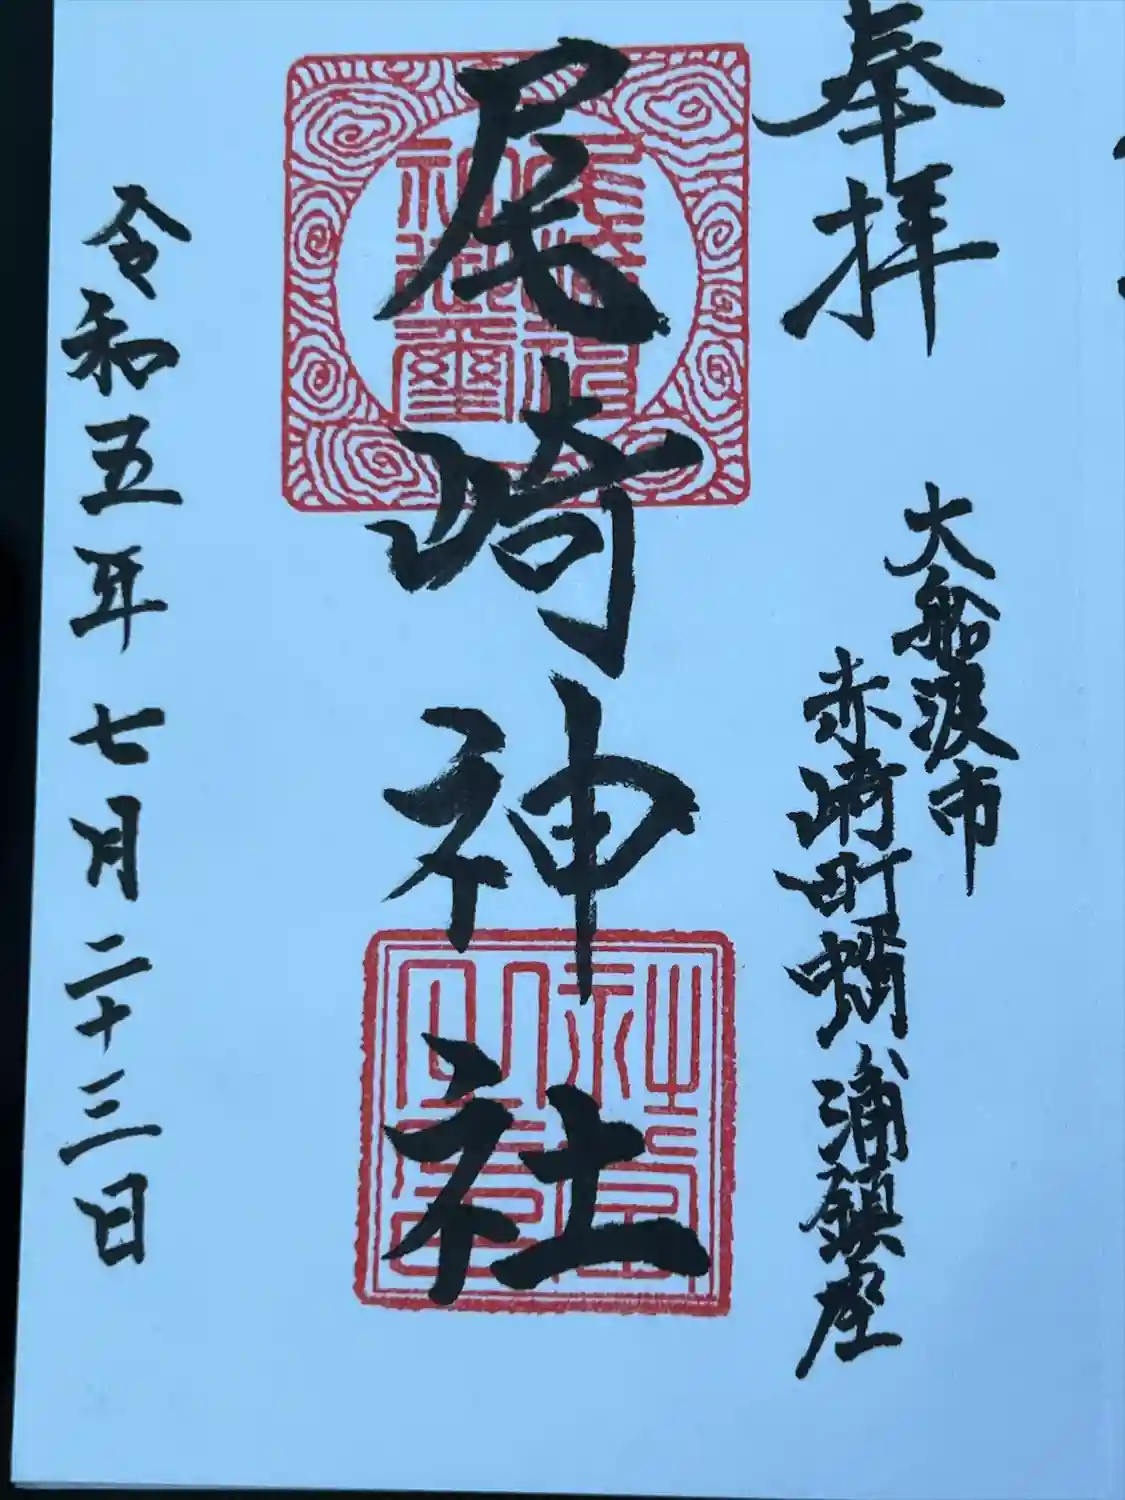 奉拝
大船渡市
赤崎町蛸浦鎮座
尾崎神社
令和五年七月二十三日